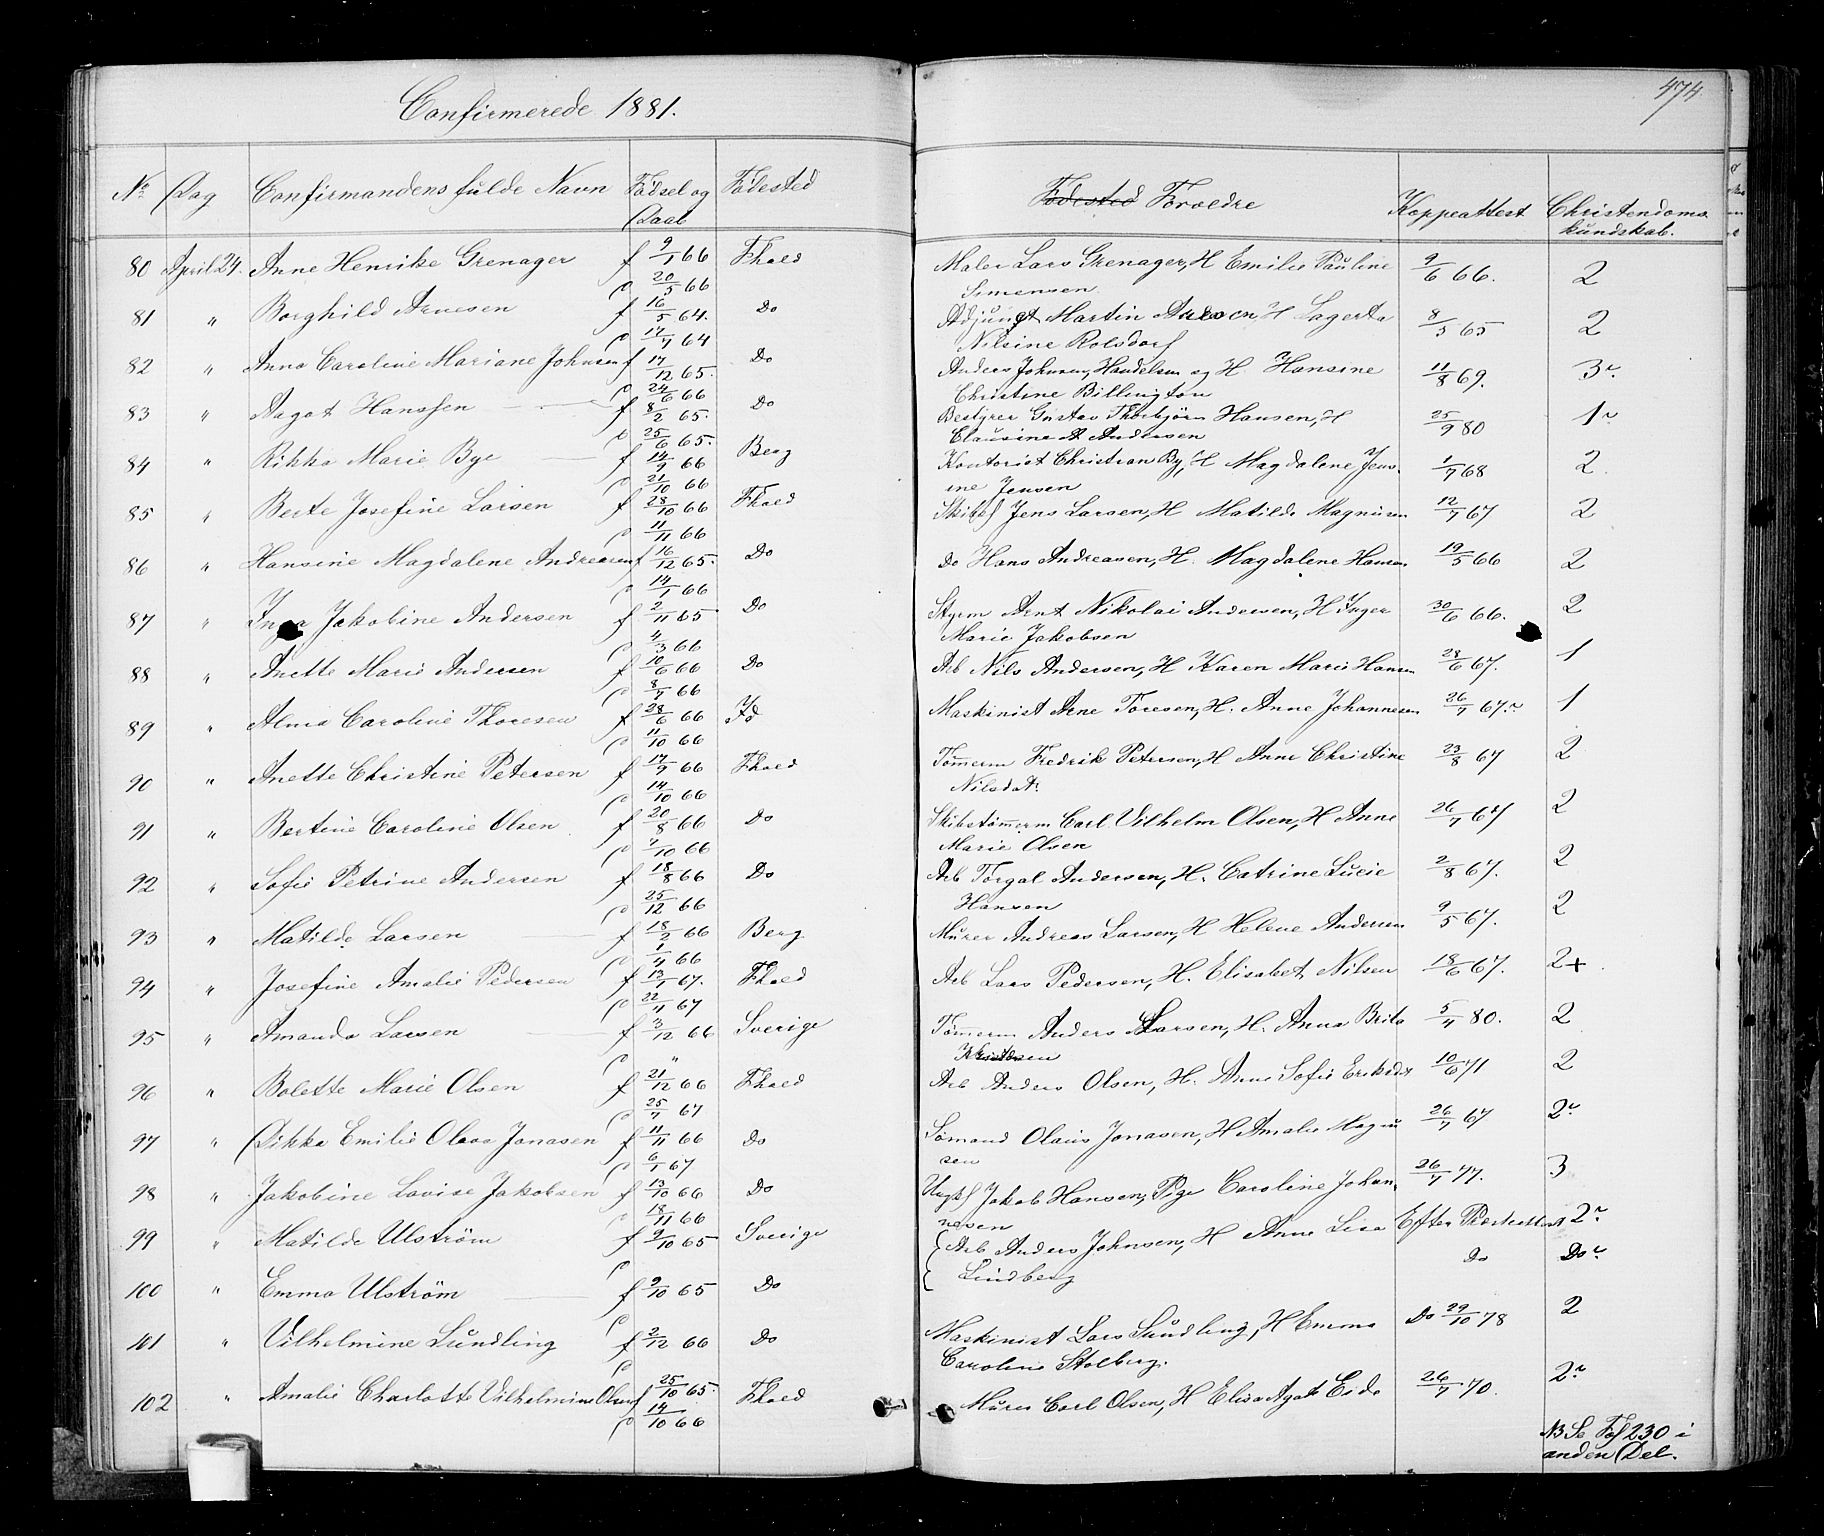 Confirmerede 1881.
474
No Dag Confirmandens fulde Navn Fødsel og Daab Fødested Fødested Forældre Koppeattest Christendoms kundskab.
80 April 24. Anne Henrike Grenager f 9/1 66 Fhald Maler Lars Grenager, H Emilie Pauline 9/6 66. 2
d 20/5 66 Simensen
81 " Borghild Arnesen f 16/5 64. Do Adjunct Martin Arnesen, H Lagerta 8/5 65 2
d 17/7 64 Nilsine Rolsdorf
82 " Anna Caroline Mariane Johnsen f 17/12 65. Do Anders Johnsen, Handelsm og H. Hansine 11/8 69. 3
d 24/6 66 Christine Billington
83 " Aagot Hanssen f 8/2 65. Do Bestyrer Gustav Thorbjørn Hansen, H 25/9 80 1
d 25/6 65. Clausine A Andersen
84 " Rikka Marie Bye f 14/9 66 Berg Kontorist Christian By, H Magdalene Jens- 1/7 68 2.
d 21/10 66 ine Jensen
85 " Berte Josefine Larsen f 28/10 66 Fhald Skibsf Jens Larsen, H Matilde Magnusen 12/7 67 2
d 11/11 66
86 " Hansine Magdalene Andreasen f 16/12 65. Do Do Hans Andreasen, H. Magdalene Hansen 19/5 66 2
d 14/1 66
87 " Inga Jakobine Andersen f 2/11 65 Do Styrm Arnt Nikolai Andersen, H Inger 30/6 66. 2
d 4/3 66 Marie Jakobsen
88 " Anette Marie Andersen f 10/6 66 Do Arb Nils Andersen, H Karen Marie Hansen 28/6 67. 1
d 8/7 66
89 " Alma Caroline Thoresen f 28/6 66 Id Maskinist Arne Toresen, H. Anne Johannesen 26/7 67. 1
d 11/10 66
90 " Anette Christine Petersen f 17/9 66 Fhald Tømerm Fredrik Petersen, H Anne Christine 23/8 67 2
d 14/10 66 Nilsdat:
91 " Bertine Caroline Olsen f 20/8 66 Do Skibstømerm Carl Vilhelm Olsen, H Anne 26/7 67 2
d 7/10 66 Marie Olsen
92 " Sofie Petrine Andersen f 18/8 66 Do Arb Torgal Andersen, H. Catrine Lucie 2/8 67. 2
d 25/12 66 Hansen
93 " Matilde Larsen f 18/2 66 Berg Murer Andreas Larsen, H Helene Andersen 9/5 67. 2
d 1/7 66
94 " Josefine Amalie Pedersen f 13/1 67. Fhald Arb Lars Pedersen, H. Elisabet Nilsen 18/6 67. 2+
d 22/4 67
95 " Amanda Larsen f 3/12 66 Sverige Tømerm Anders Larsen, H. Anna Brita 5/7 80. 2
d "
96 " Bolette Marie Olsen f 21/12 66 Fhald Arb Anders Olsen, H. Anne Sofie Eriksdat 10/6 71 2
d 25/7 67
97 " Dikka Emilie Olava Jonasen f 11/11 66 Do Sømand Olaus Jonasen, H Amalie Magnu 26/7 67 2
d 6/1 67 sen
98 " Jakobine Lovise Jakobsen f 13/10 66 Do Ungk Jakob Hansen, Pige Caroline Johan- 26/7 77. 3
d 18/11 66 nesen
99 " Matilde Ulstrøm f 9/10 65 Sverige Arb Anders Johnsen, H Anne Lisa Efter Præsteattest 2
d Lindberg
100 " Emma Ulstrøm f 9/10 65 Do Do Do
d
101 " Vilhelmine Lundling f 2/12 66 Do Maskinist Lars Sundling, H Emma Do 29/10 78 2
d Caroline Stolberg.
102 " Amalie Charlotte Vilhelmine Olsen f 25/10 65. Fhald Murer Carl Olsen, H Elisa Agate Eide 26/7 70. 2
d 14/10 66
NB Se Fol 230 i
anden Del.